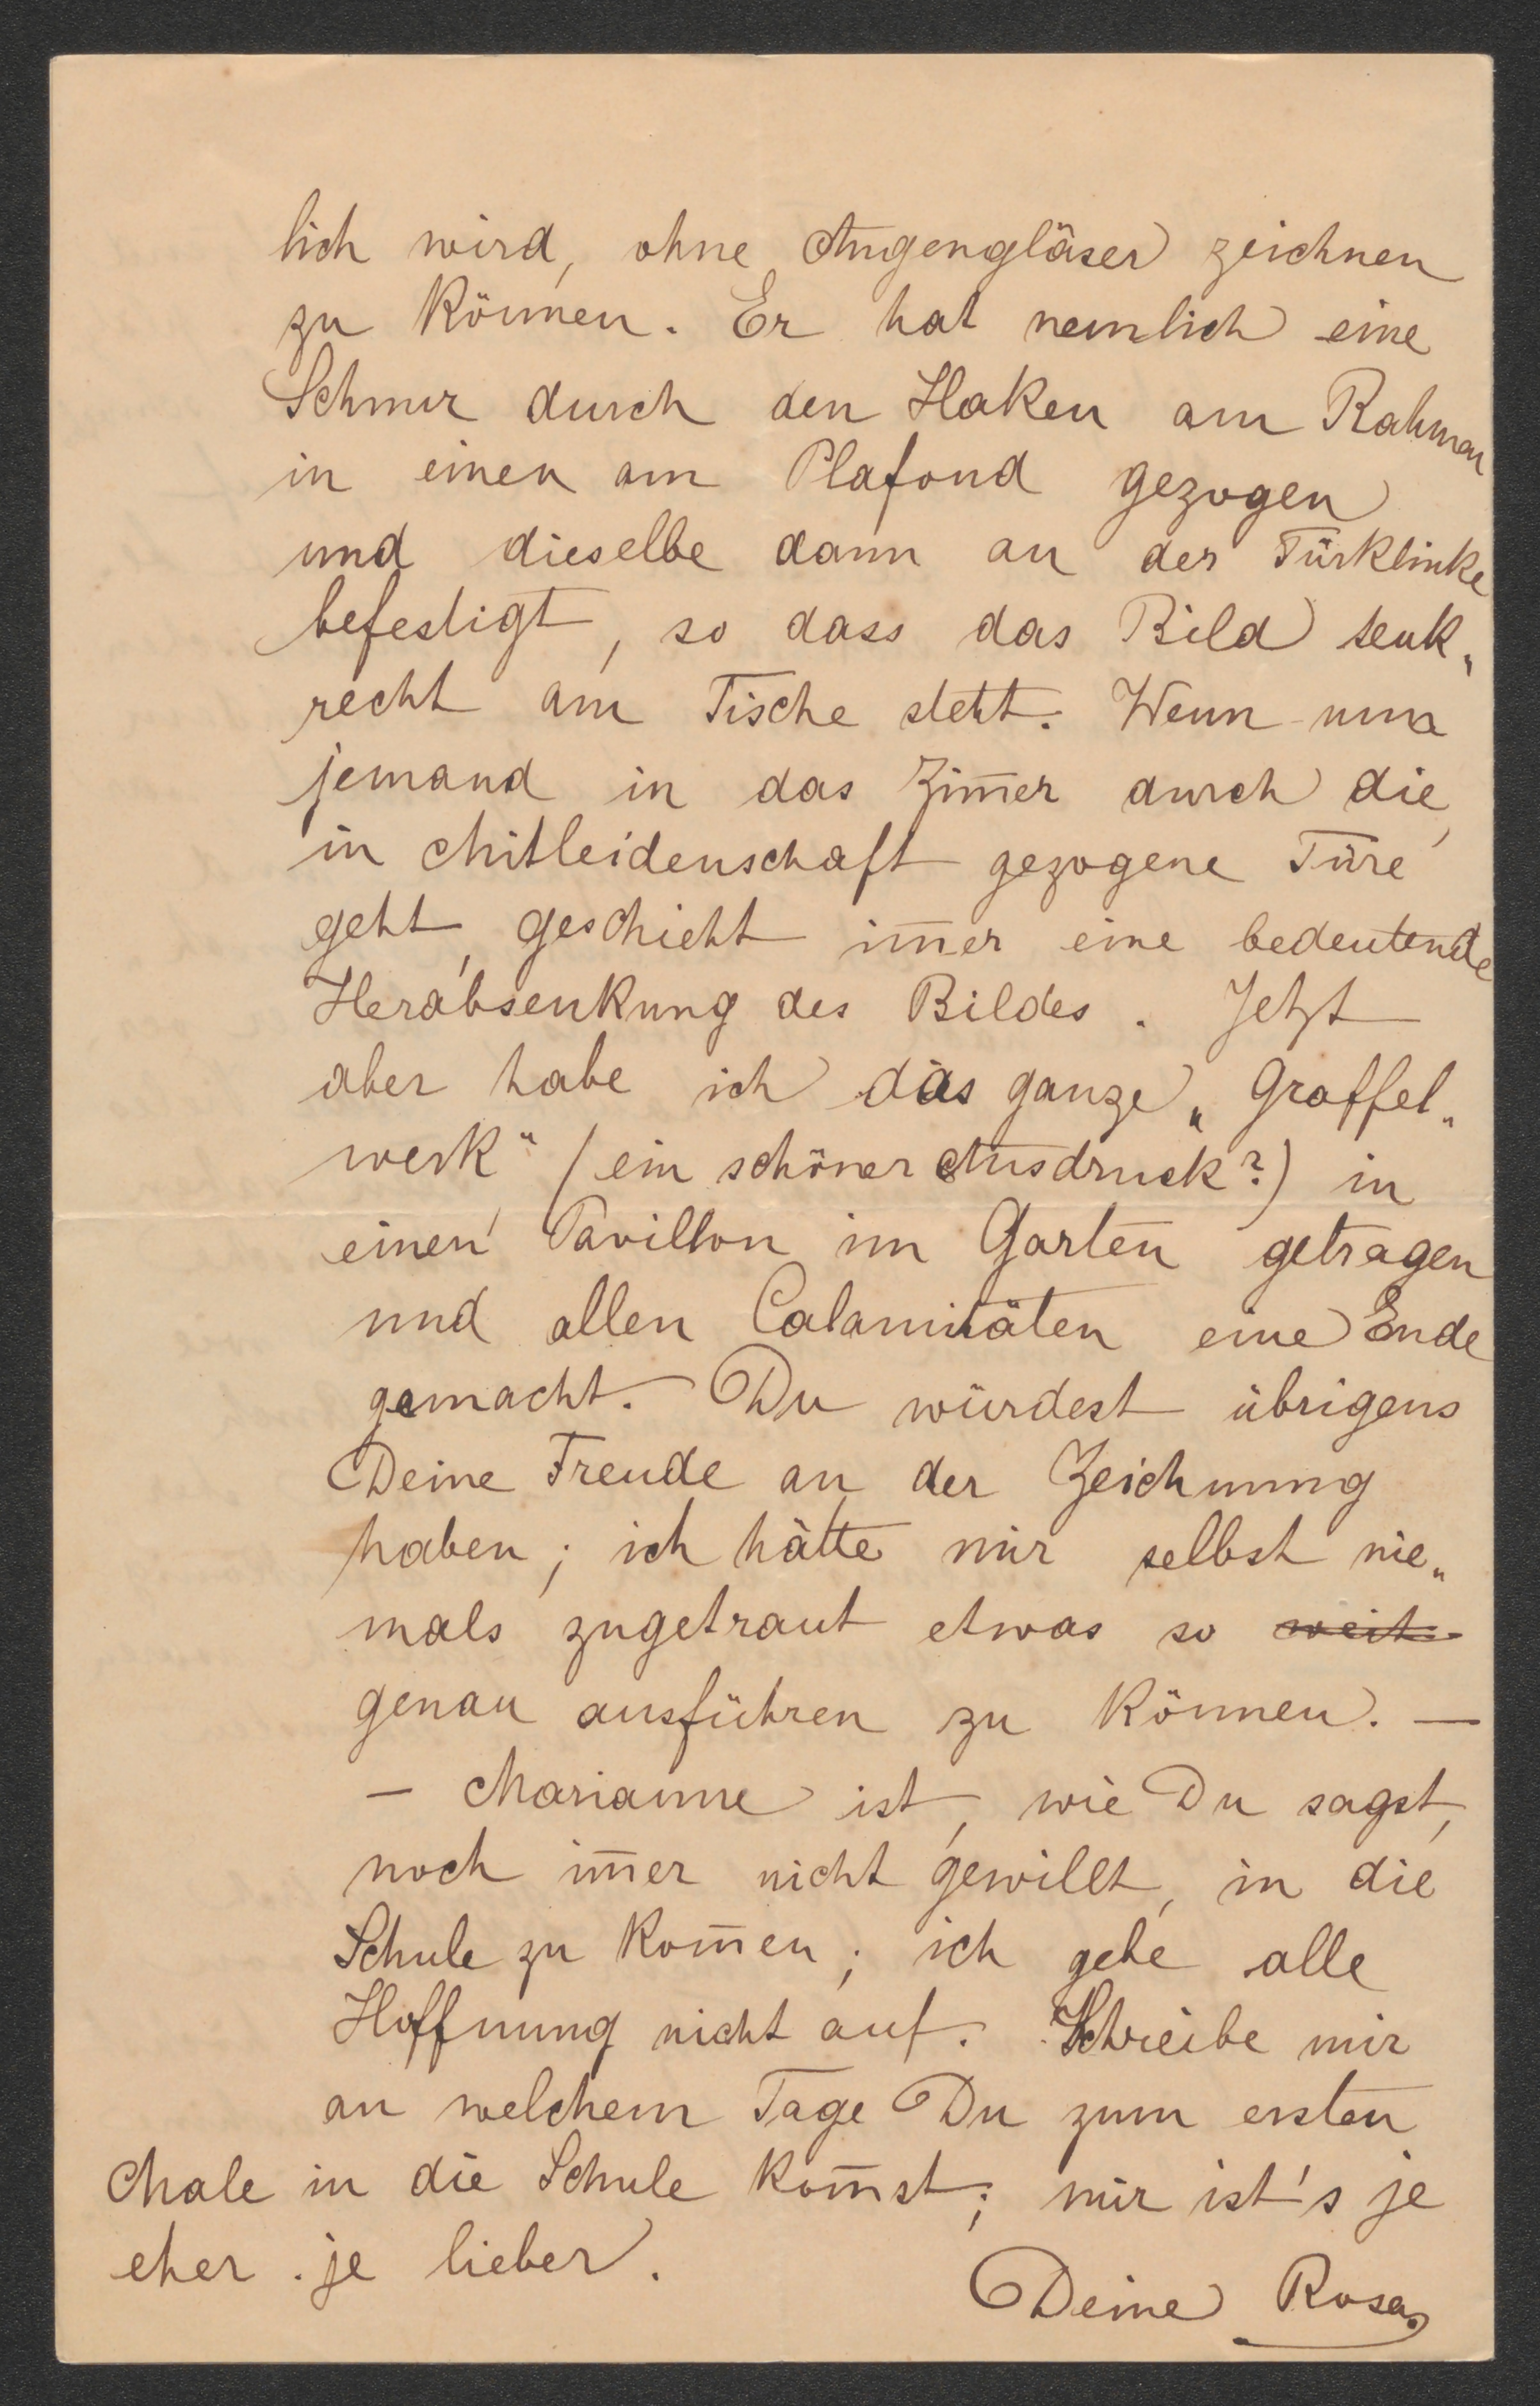 lich wird, ohne Augengläser zeichnen
zu können. Er hat nemlich eine
Schnur durch den Haken am Rahmen
in einen am Plafond gezogen
und dieselbe dann an der Türklinke
befestigt, so dass das Bild senk„
recht am Tische steht. Wenn nun
jemand in das Zim̅er durch die,
in Mitleidenschaft gezogene Türe
geht, geschieht im̅er eine bedeutende
Herabsenkung des Bildes. Jetzt
aber habe ich das ganze „Graffel„
werk“ (ein schöner Ausdruck?) in
einen Pavillon im Garten getragen
und allen Calamitäten eine Ende
gemacht. Du würdest übrigens
Deine Freude an der Zeichnung
haben; ich hätte mir selbst nie„
mals zugetraut etwas so weit
genau ausführen zu können. —
– Marianne ist, wie Du sagst,
noch im̅er nicht gewillt, in die
Schule zu kom̅en; ich gebe alle
Hoffnung nicht auf. Schreibe mir
an welchem Tage Du zum ersten
Male in die Schule kom̅st; mir ist's je
eher je lieber.
Deine Rosa.